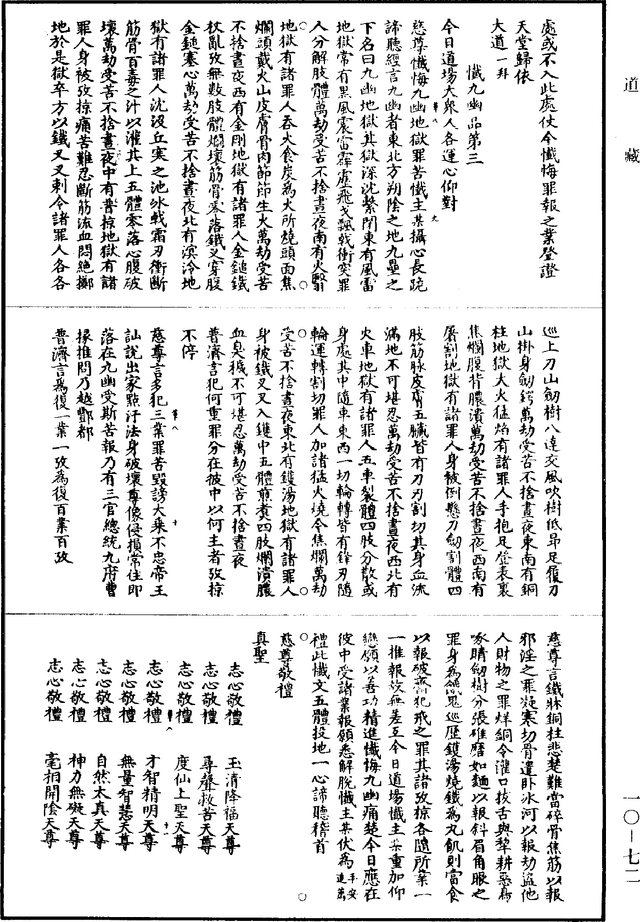 道藏
處或不入此處仗今懺悔罪報之業登證
天堂歸依
大道一拜
懺九幽品第三
今日道場大衆人各運心仰對
慈尊懺悔九幽地獄罪苦懺主某攝心長跪
諦聽經言九幽者東北方朔陰之地九壘之
下名曰九幽地獄其獄深沈繫閉東有風雷
地獄常有黑風震雷霹靂飛戈飄戟衝突罪
人分解肢體萬劫受苦不捨晝夜南有火翳
地獄有諸罪人吞火食炭爲火所燒頭面焦
爛頭戴火山皮膚骨肉節節生火萬劫受苦
不捨晝夜西有金剛地獄有諸罪人金鎚鐵
杖亂攷無數肢體爛壞筋骨零落鐵叉穿腹
金鎚塞心萬劫受苦不捨晝夜北有溟泠地
獄有諸罪人沈没丘寒之池冰戟霜刃衝斷
筋骨百毒之汁以灌其上五體零落心腹破
壞萬劫受苦不捨晝夜中有普掠地獄有諸
罪人身被攷掠痛苦難忍斷筋流血悶絕擲
地於是獄卒方以鐵叉叉刺令諸罪人各各
巡上刀山劒樹八達交風吹樹低昂足履刀
山掛身劒鍔萬劫受苦不捨晝夜東南有銅
柱地獄大火猛焰有諸罪人手抱足登表裏
焦爛腹背膿潰萬劫受苦不捨晝夜西南有
屠割地獄有諸罪人身被倒懸刀劒割體四
肢筋脉皮膚五臟皆有刀刃割切其身血流
滿地不可堪忍萬劫受苦不捨晝夜西北有
火車地獄有諸罪人五車裂體四肢分散或
身處其中隨車東西一切輪轉皆有鋒刃隨
輪運轉割切罪人加諸猛火燒令焦爛萬劫
受苦不捨晝夜東北有鑊湯地獄有諸罪人
身被鐵叉叉入鑊中五體煎煮四肢爛潰膿
血臭穢不可堪忍萬劫受苦不捨晝夜
普濟言犯何重罪分在彼中以何主者攷掠
不停
慈尊言多犯三業罪苦毀謗大乘不忠帝王
訕說出家點汙法身破壞尊像侵損常住即
落在九幽受斯苦報乃有三官總統九府曹
掾推問乃越酆都
普濟言爲復一業一攷爲復百業百攷
慈尊言鐵牀銅柱悲楚難當碎骨焦筋以報
邪淫之罪凝寒切骨還卧冰河以報劫盜他
人財物之罪烊銅今灌口拔舌與犁耕惡鳥
啄睛劒樹分張碓磨如麵以報斜眉角眼之
罪身爲餓鬼巡歷鑊湯燒鐵爲丸飢則當食
以報破齋犯戒之罪其諸攷掠各隨所業一
一推報放無差至今日道場懺主某重加仰
戀願以善功精進懺悔九幽痛楚今日應在
彼中受諸業報願悉解脫懺主某伏爲
禮此懺文五體投地一心諦聽稽首
慈尊敬禮
真聖
志心敬禮 玉清降福天尊
志心敬禮 尋聲救苦天尊
志心敬禮 度仙上聖天尊
志心敬禮 才智精明天尊
志心敬禮 無量智慧天尊
志心敬禮 自然太真天尊
志心敬禮 神力無礙天尊
志心敬禮 毫相開陰天尊
一〇—七二